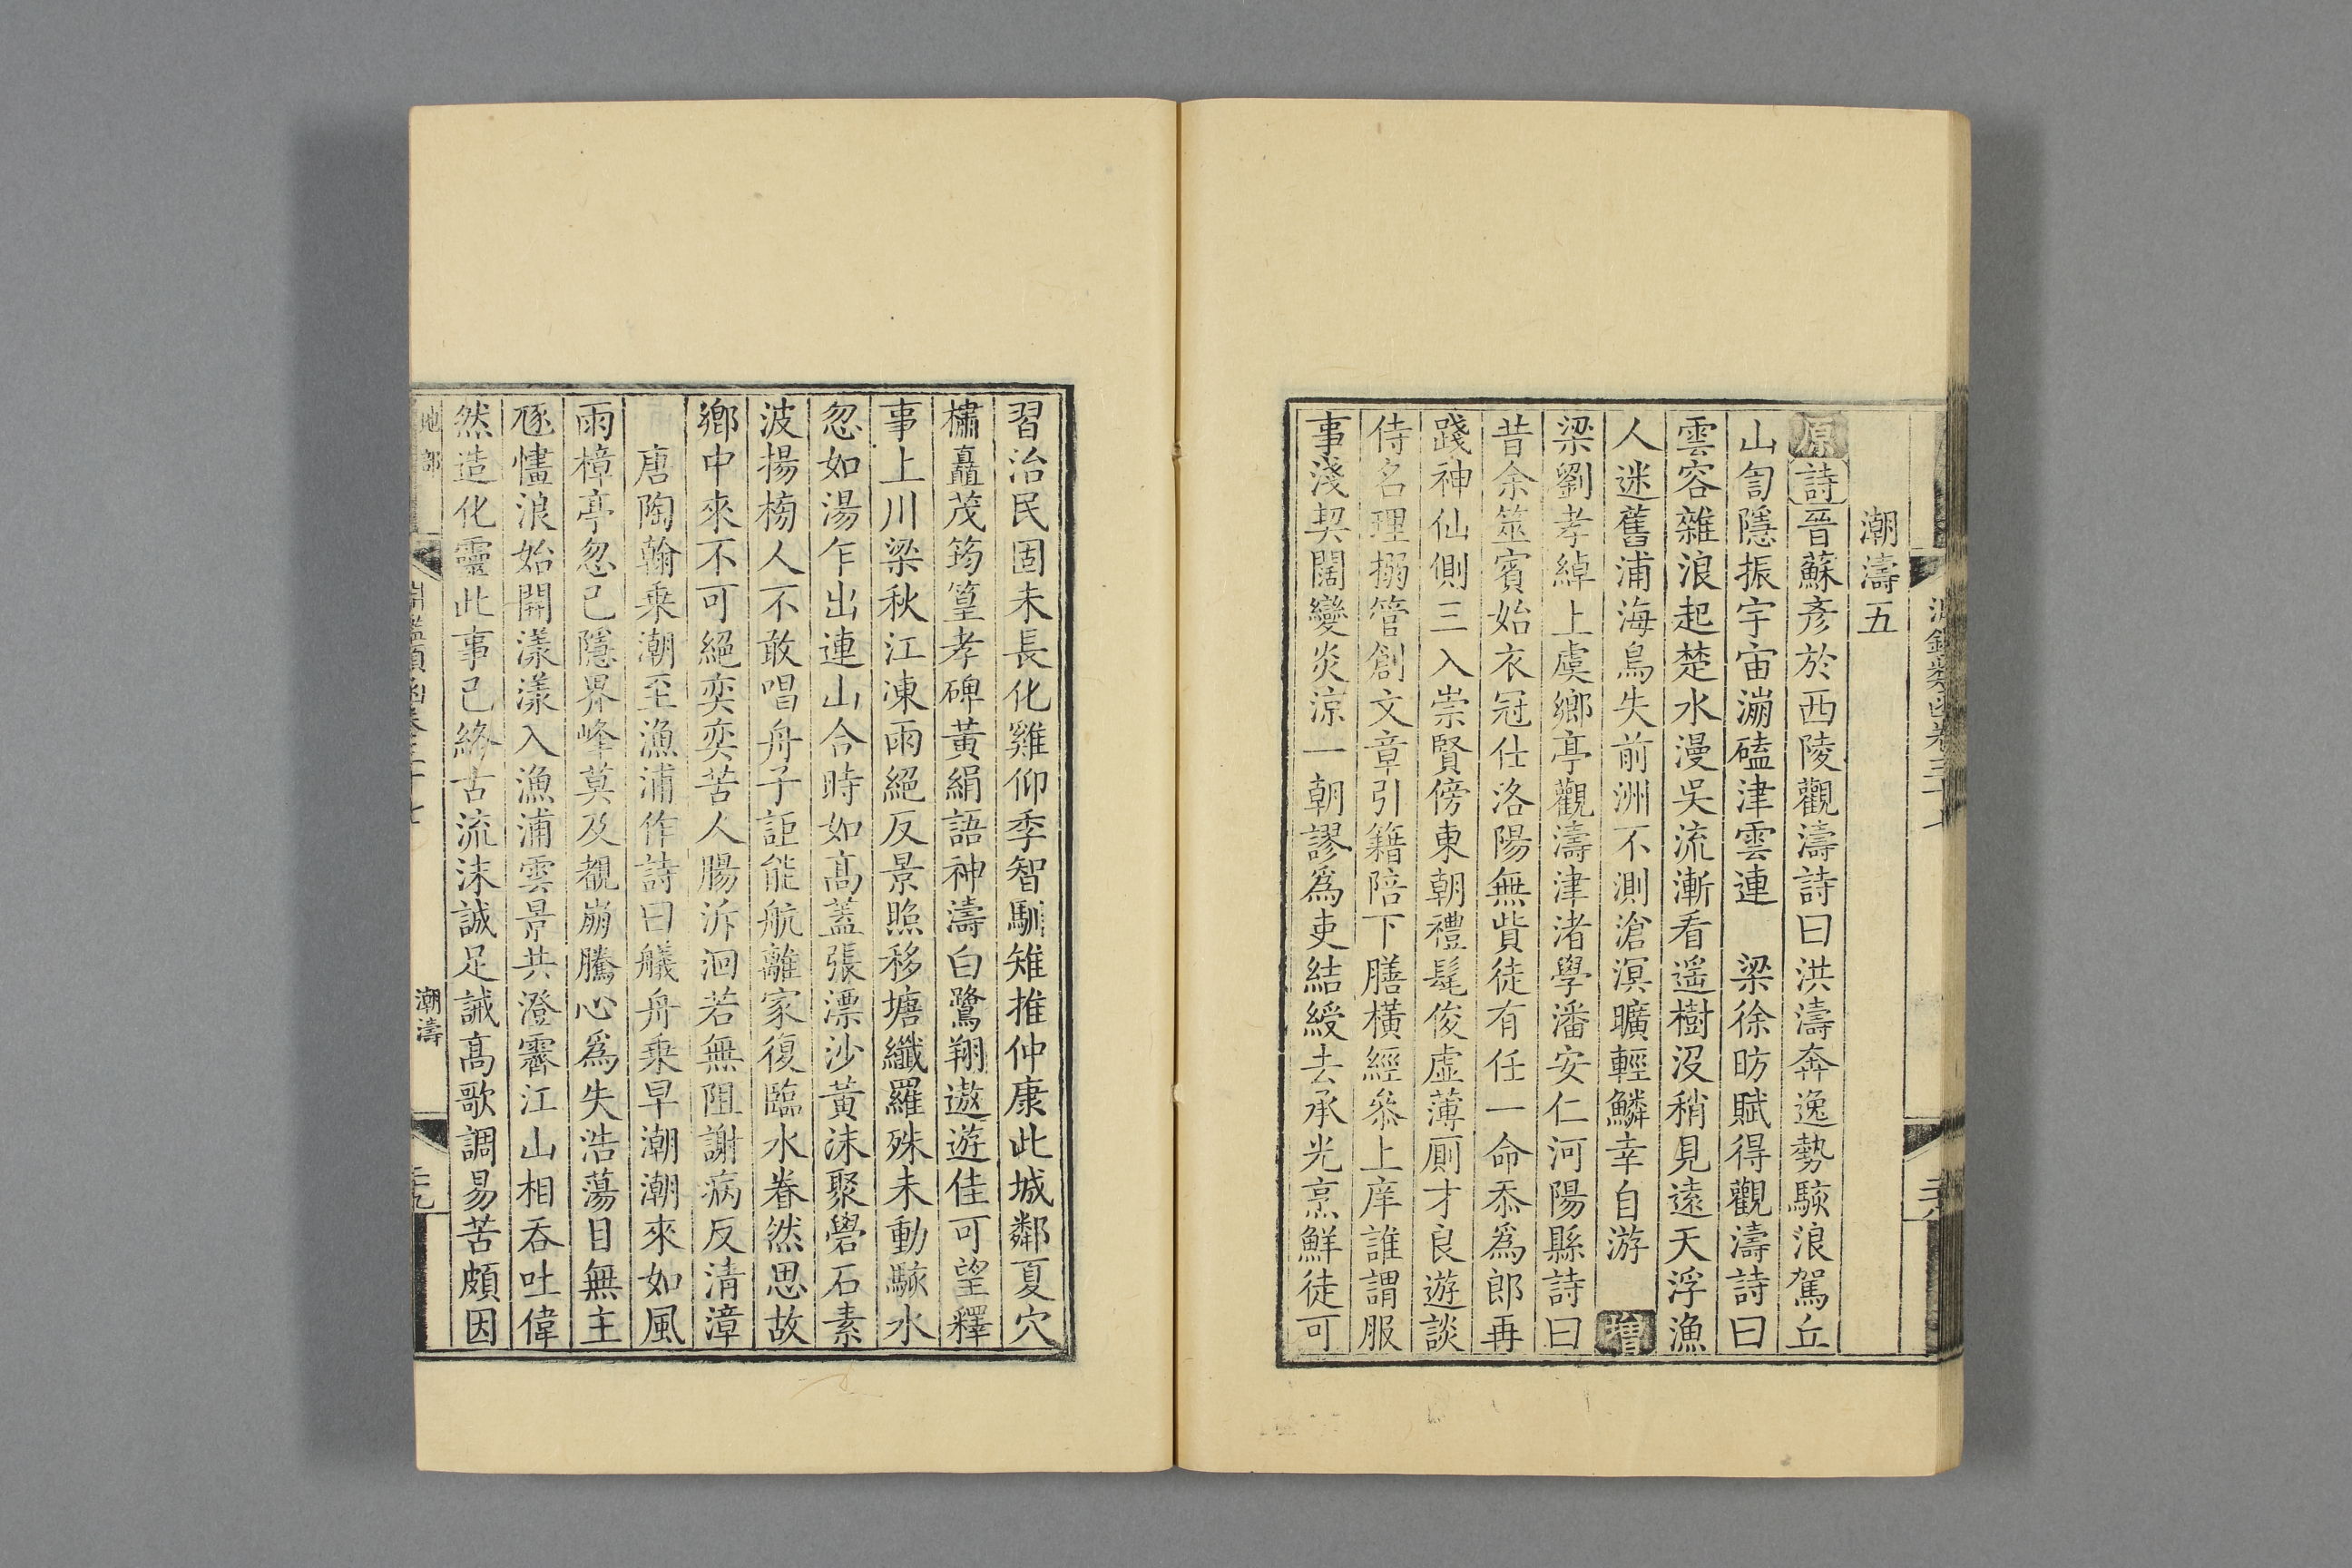 淵鑑類函卷三十七
二六
潮濤五
原詩晉蘇彥於西陵觀濤詩曰洪濤奔逸勢駭浪駕丘
山訇隱振宇宙漰磕津雲連　梁徐昉賦得觀濤詩曰
雲容雜浪起楚水漫吳流漸看遥樹沒稍見遠天浮漁
人迷舊浦海鳥失前洲不測滄溟曠輕鱗幸自游　增
梁劉孝綽上虞鄉亭觀濤津渚學潘安仁河陽縣詩曰
昔余筮賓始衣冠仕洛陽無貲徒有任一命忝爲郎再
踐神仙側三入崇賢傍東朝禮髦俊虛薄厠才良遊談
侍名理搦管創文章引籍陪下膳橫經叅上庠誰謂服
事淺契闊變炎涼一朝謬爲吏結綬去承光烹鮮徒可
習治民固未長化雞仰季智馴雉推仲康此城鄰夏穴
櫹矗茂筠篁孝碑黃絹語神濤白鷺翔遨遊佳可望釋
事上川梁秋江凍雨絕反景照移塘纖羅殊未動駭水
忽如湯乍出連山合時如高蓋張漂沙黃沫聚礐石素
波揚榜人不敢唱舟子詎能航離家復臨水眷然思故
鄉中來不可絕奕奕苦人腸泝洄若無阻謝病反清漳
唐陶翰乗潮至漁浦作詩曰艤舟乗早潮潮來如風
雨樟亭忽已隱界峰莫及覩崩騰心爲失浩蕩目無主
豗𢥠浪始開漾漾入漁浦雲景共澄霽江山相吞吐偉
然造化靈此事已終古流沫誠足誡高歌調易苦頗因
地部
淵鑑類函卷三十七
潮濤
二九